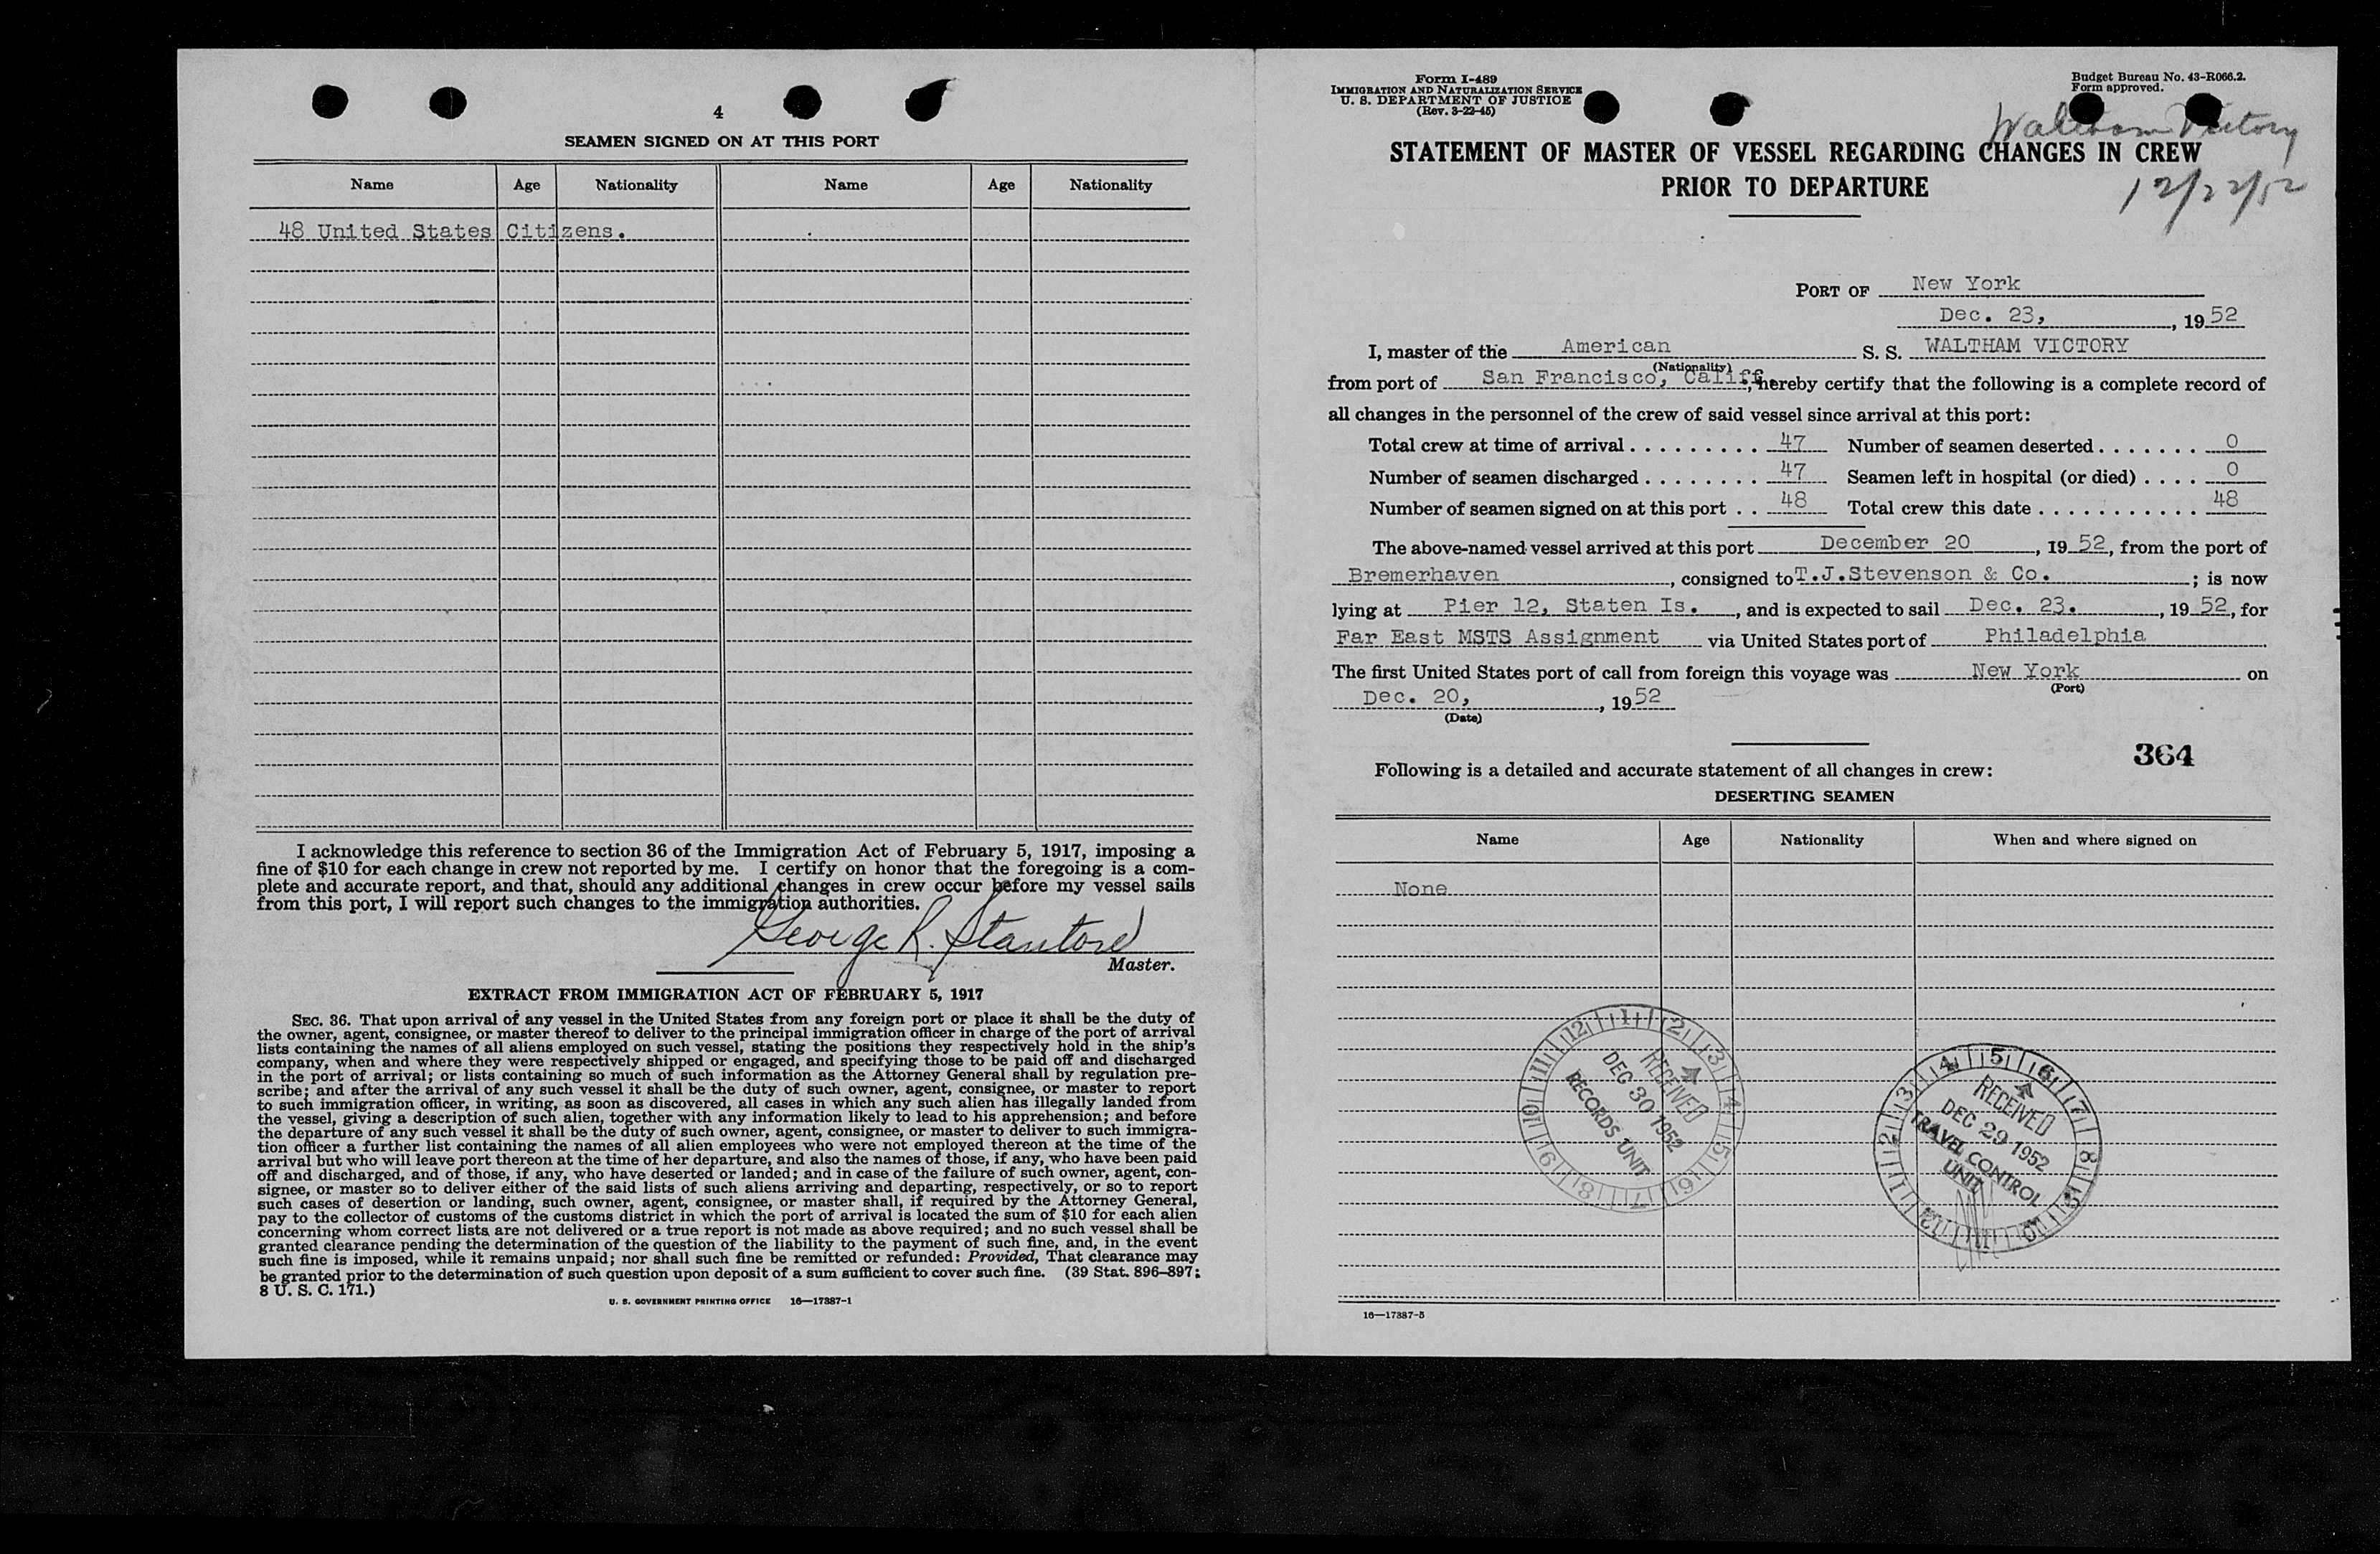 4
SEAMEN SIGNED ON AT THIS PORT
Name Age Nationality Name Age Nationality
48 United States Citizens.
I acknowledge this reference to section 36 of the Immigration Act of February 5, 1917, imposing a
fine of $10 for each change in crew not reported by me. I certify on honor that the foregoing is a com-
plete and accurate report, and that, should any additional changes in crew occur before my vessel sails
from this port, I will report such changes to the immigration authorities.
George R. Stantord
Master.
EXTRACT FROM IMMIGRATION ACT OF FEBRUARY 5, 1917
SEC. 36. That upon arrival of any vessel in the United States from any foreign port or place it shall be the duty of
the owner, agent, consignee, or master thereof to deliver to the principal immigration officer in charge of the port of arrival
lists containing the names of all aliens employed on such vessel, stating the positions they respectively hold in the ship's
company, when and where they were respectively shipped or engaged, and specifying those to be paid off and discharged
in the port of arrival; or lists containing so much of such information as the Attorney General shall by regulation pre-
scribe; and after the arrival of any such vessel it shall be the duty of such owner, agent, consignee, or master to report
to such immigration officer, in writing, as soon as discovered, all cases in which any such alien has illegally landed from
the vessel, giving a description of such alien, together with any information likely to lead to his apprehension; and before
the departure of any such vessel it shall be the duty of such owner, agent, consignee, or master to deliver to such immigra-
tion officer a further list containing the names of all alien employees who were not employed thereon at the time of the
arrival but who will leave port thereon at the time of her departure, and also the names of those, if any, who have been paid
off and discharged, and of those, if any, who have deserted or landed; and in case of the failure of such owner, agent, con-
signee, or master so to deliver either of the said lists of such aliens arriving and departing, respectively, or so to report
such cases of desertion or landing, such owner, agent, consignee, or master shall, if required by the Attorney General,
pay to the collector of customs of the customs district in which the port of arrival is located the sum of $10 for each alien
concerning whom correct lists are not delivered or a true report is not made as above required; and no such vessel shall be
granted clearance pending the determination of the question of the liability to the payment of such fine, and, in the event
such fine is imposed, while it remains unpaid; nor shall such fine be remitted or refunded: Provided, That clearance may
be granted prior to the determination of such question upon deposit of a sum sufficient to cover such fine. (39 Stat. 896–897;
8 U. S. C. 171.)
U. S. GOVERNMENT PRINTING OFFICE 16—17387-1
Form I-489
IMMIGRATION AND NATURALIZATION SERVICE
U. S. DEPARTMENT OF JUSTICE
(Rev. 3-22-45)
Budget Bureau No. 43-R066.2.
Form approved.
Waltham Victory
12/22/52
STATEMENT OF MASTER OF VESSEL REGARDING CHANGES IN CREW
PRIOR TO DEPARTURE
PORT OF New York
Dec. 23, , 19 52
I, master of the American S. S. WALTHAM VICTORY
(Nationality)
from port of San Francisco, Califf., hereby certify that the following is a complete record of
all changes in the personnel of the crew of said vessel since arrival at this port:
Total crew at time of arrival . . . . . . . . . 47 Number of seamen deserted . . . . . . . 0
Number of seamen discharged . . . . . . . . 47 Seamen left in hospital (or died) . . . . 0
Number of seamen signed on at this port . . 48 Total crew this date . . . . . . . . . . . 48
The above-named vessel arrived at this port December 20 , 19 52, from the port of
Bremerhaven , consigned to T.J.Stevenson & Co. ; is now
lying at Pier 12, Staten Is. , and is expected to sail Dec. 23. , 19 52, for
Far East MSTS Assignment via United States port of Philadelphia
The first United States port of call from foreign this voyage was New York on
(Port)
Dec. 20, , 19 52
(Date)
364
Following is a detailed and accurate statement of all changes in crew:
DESERTING SEAMEN
Name Age Nationality When and where signed on
None
RECEIVED
DEC 30 1952
RECORDS UNIT
12 1 2 3 4 5 6 7 8 9 10 11
RECEIVED
DEC 29 1952
TRAVEL CONTROL
UNIT
4 5 6 7 8 9 10 11 12 1 2 3
16—17387-5